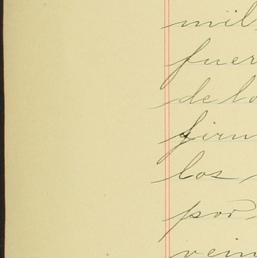 mil
fuer
de lo
firm
los
por
vein